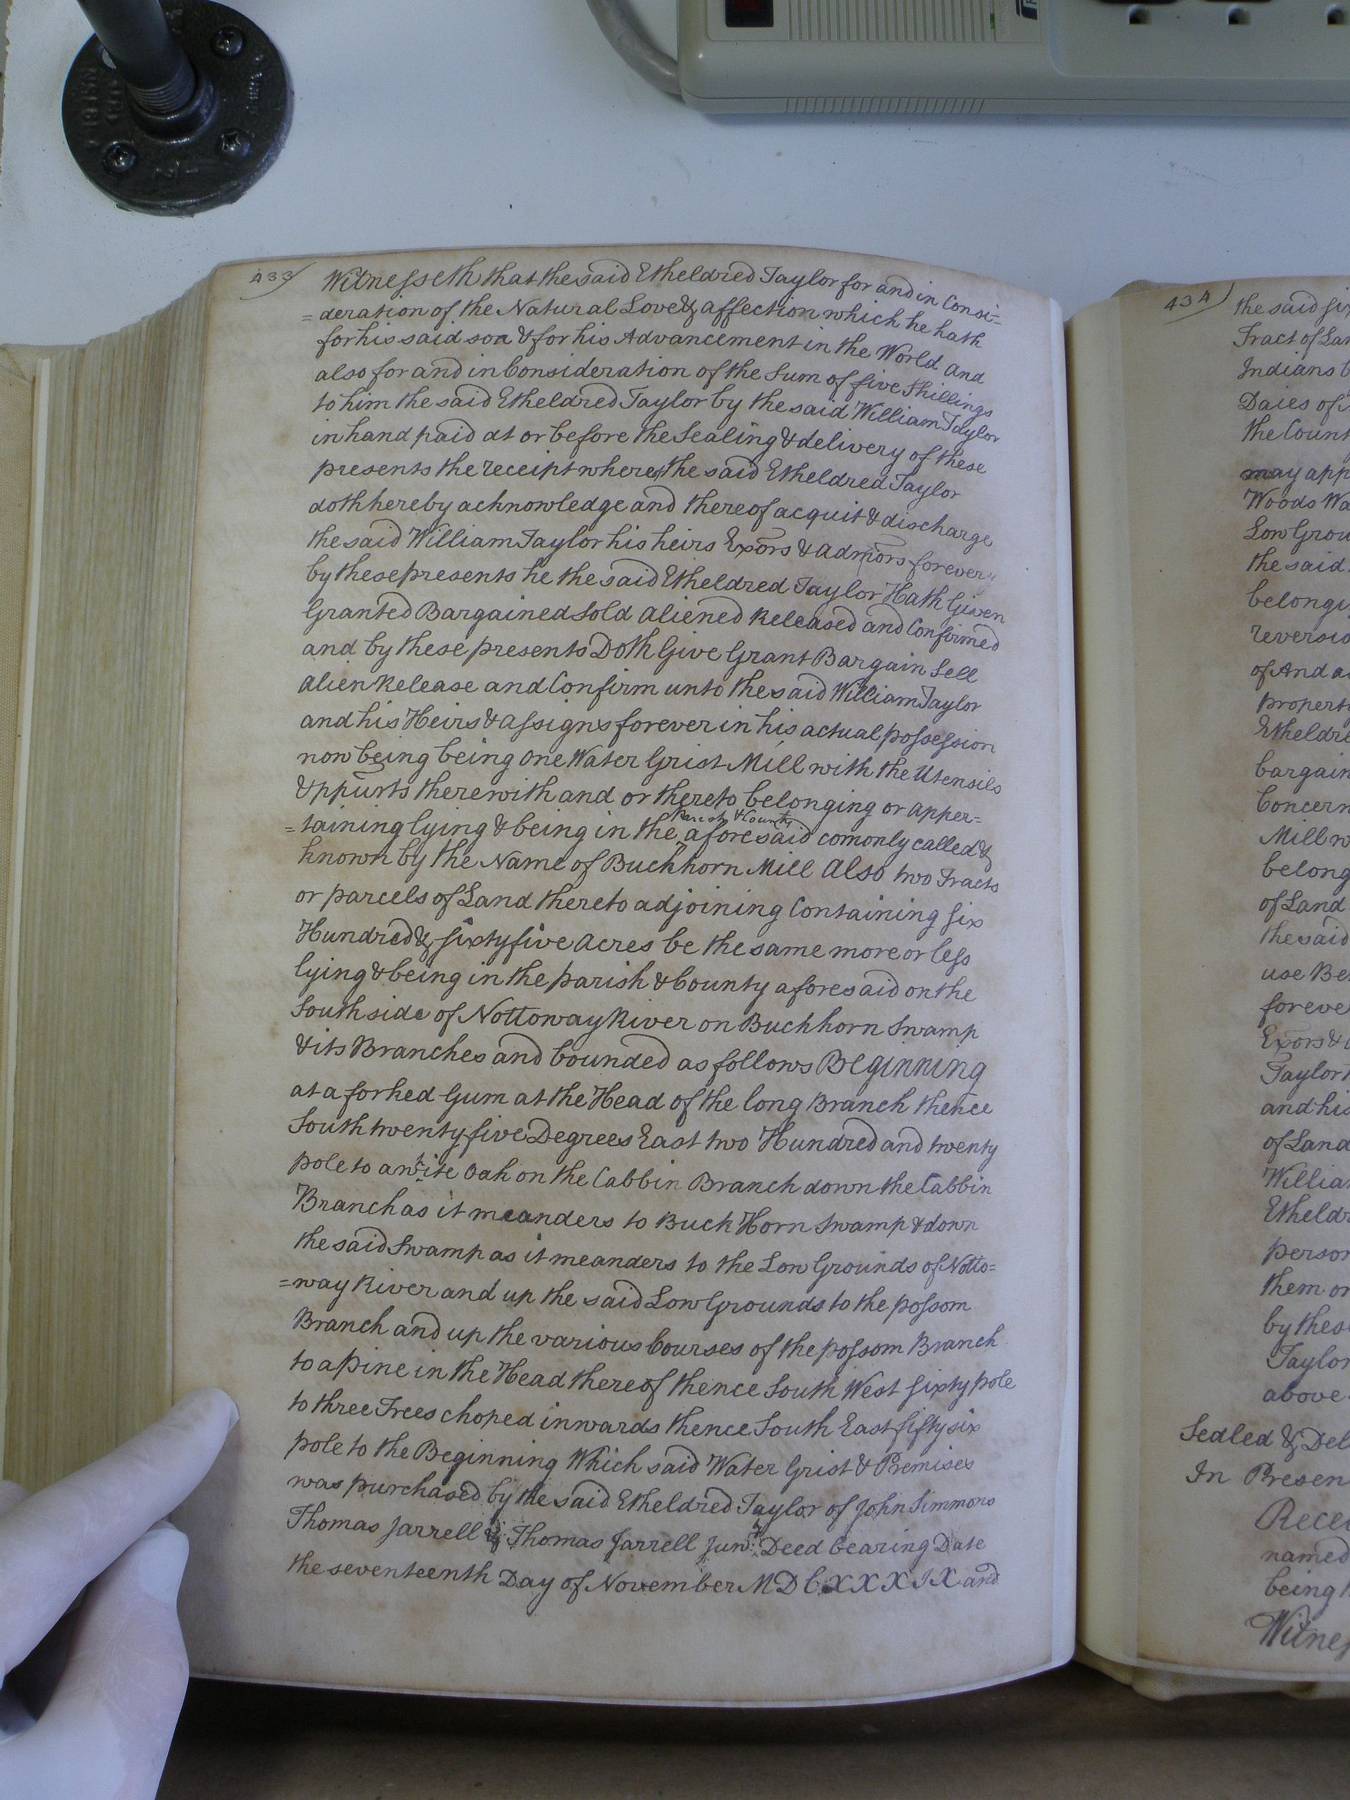 433
Witnesseth that the said Etheldred Taylor for and in Consi-
=deration of the Natural Love & affection which he hath
for his said son & for his Advancement in the World and
also for and in Consideration of the Sum of five Shillings
to him the said Etheldred Taylor by the said William Taylor
in hand paid at or before the Sealing & delivery of these
presents the receipt whereof the said Etheldred Taylor
doth hereby acknowledge and thereof acquit & discharge
the said William Taylor his heirs Exors & admors forever
by these presents he the said Etheldred Taylor Hath Given
Granted Bargained Sold aliened Released and Confirmed
and by these presents Doth Give Grant Bargain Sell
alien Release and Confirm unto the said William Taylor
and his Heirs & assigns forever in his actual possession
now being being One Water Grist Mill with the Utensils
& ppurts therewith and or thereto belonging or apper=
=taining lying & being in the Parish & County aforesaid comonly called &
known by the Name of Buckhorn Mill Also two Tracts
or parcels of Land thereto adjoining Containing six
Hundred & sixty five acres be the same more or less
lying & being in the parish & County aforesaid on the
South side of Nottoway River on Buckhorn Swamp
& its Branches and bounded as follows Beginning
at a forked Gum at the Head of the long Branch thence
South twenty five Degrees East two Hundred and twenty
pole to a white Oak on the Cabbin Branch down the Cabbin
Branch as it meanders to Buck Horn Swamp & down
the said Swamp as it meanders to the Low Grounds of Notto=
=way River and up the said Low Grounds to the possom
Branch and up the various Courses of the possom Branch
to a pine in the Head thereof thence South West sixty pole
to three Trees choped inwards thence South East fifty six
pole to the Beginning Which said Water Grist & Premises
was purchased by the said Etheldred Taylor of John Simmons
Thomas Jarrell & Thomas Jarrell Junr. Deed bearing Date
the seventeenth Day of November MDCXXXIX and
434
the said
Tract of
Indians
Daies of
the
may
Woods
Low
the said
of And
Mill
of Land
the said
use
Taylor
and his
of Land
them or
Taylor
above
Sealed &
In
named
being